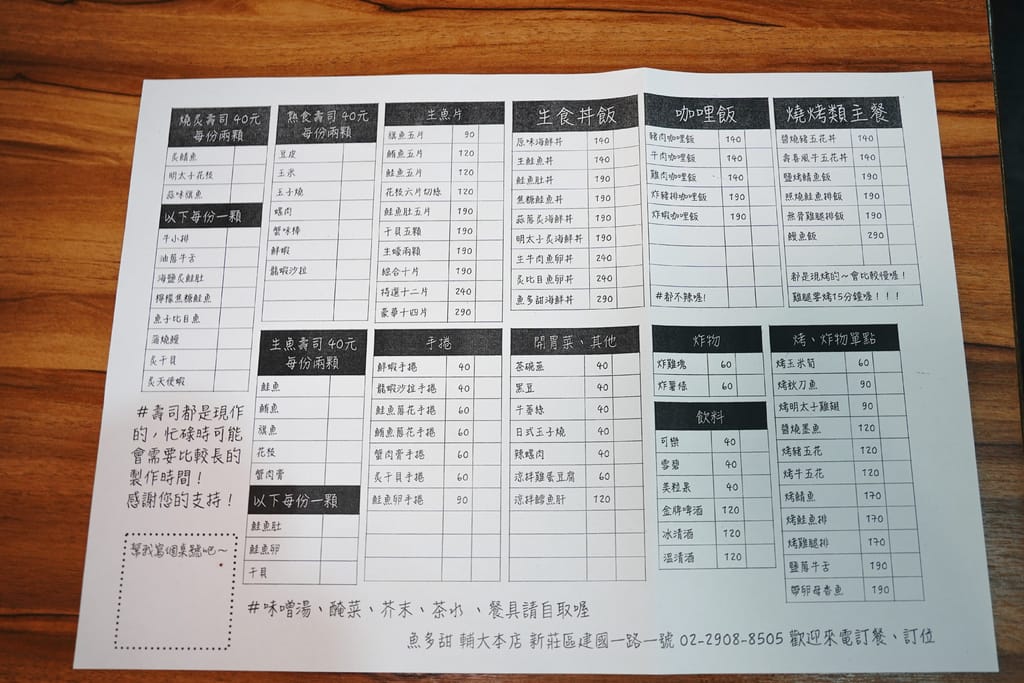 燒炙壽司 40元
每份兩顆
炙鯖魚
明太子花枝
蒜味旗魚
以下每份一顆
牛小排
油蔥牛舌
海鹽炙鮭肚
檸檬焦糖鮭魚
魚子比目魚
蒲燒鰻
炙干貝
炙天使蝦
#壽司都是現作
的，忙碌時可能
會需要比較長的
製作時間！
感謝您的支持！
幫我寫個桌號吧～
熟食壽司 40元
每份兩顆
豆皮
玉米
玉子燒
螺肉
蟹味棒
鮮蝦
龍蝦沙拉
生魚壽司 40元
每份兩顆
鮭魚
鮪魚
旗魚
花枝
蟹肉膏
以下每份一顆
鮭魚肚
鮭魚卵
干貝
生魚片
旗魚五片 90
鮪魚五片 120
鮭魚五片 120
花枝六片切絲 120
鮭魚肚五片 190
干貝五顆 190
生蠔兩顆 190
綜合十片 190
特選十二片 240
豪華十四片 290
手捲
鮮蝦手捲 40
龍蝦沙拉手捲 40
鮭魚蔥花手捲 60
鮪魚蔥花手捲 60
蟹肉膏手捲 60
炙干貝手捲 60
鮭魚卵手捲 90
生食丼飯
原味海鮮丼 140
生鮭魚丼 140
鮭魚肚丼 190
焦糖鮭魚丼 190
蒜蔥炙海鮮丼 190
明太子炙海鮮丼 190
生牛肉魚卵丼 190
炙比目魚卵丼 190
魚多甜海鮮丼 290
開胃菜、其他
茶碗蒸 40
黑豆 40
牛蒡絲 40
日式玉子燒 40
辣螺肉 40
涼拌雞蛋豆腐 60
涼拌鱈魚肝 120
咖哩飯
豬肉咖哩飯 140
牛肉咖哩飯 140
雞肉咖哩飯 140
炸豬排咖哩飯 190
炸蝦咖哩飯 190
#都不辣喔！
炸物
炸雞塊 60
炸薯條 60
飲料
可樂 40
雪碧 40
美粒果 40
金牌啤酒 120
冰清酒 120
溫清酒 120
燒烤類主餐
醬燒豬五花丼 140
壽喜風牛五花丼 140
鹽烤鯖魚飯 190
照燒鮭魚排飯 190
無骨雞腿排飯 190
鰻魚飯 290
都是現烤的～會比較慢喔！
雞腿要烤15分鐘喔！！！
烤、炸物單點
烤玉米筍 60
烤秋刀魚 90
烤明太子雞翅 90
醬燒墨魚 120
烤豬五花 120
烤牛五花 120
烤鯖魚 170
烤鮭魚排 170
烤雞腿排 170
鹽蔥牛舌 190
帶卵母香魚 190
#味噌湯、醃菜、芥末、茶水、餐具請自取喔
魚多甜 輔大本店 新莊區建國一路一號 02-2908-8505 歡迎來電訂餐、訂位